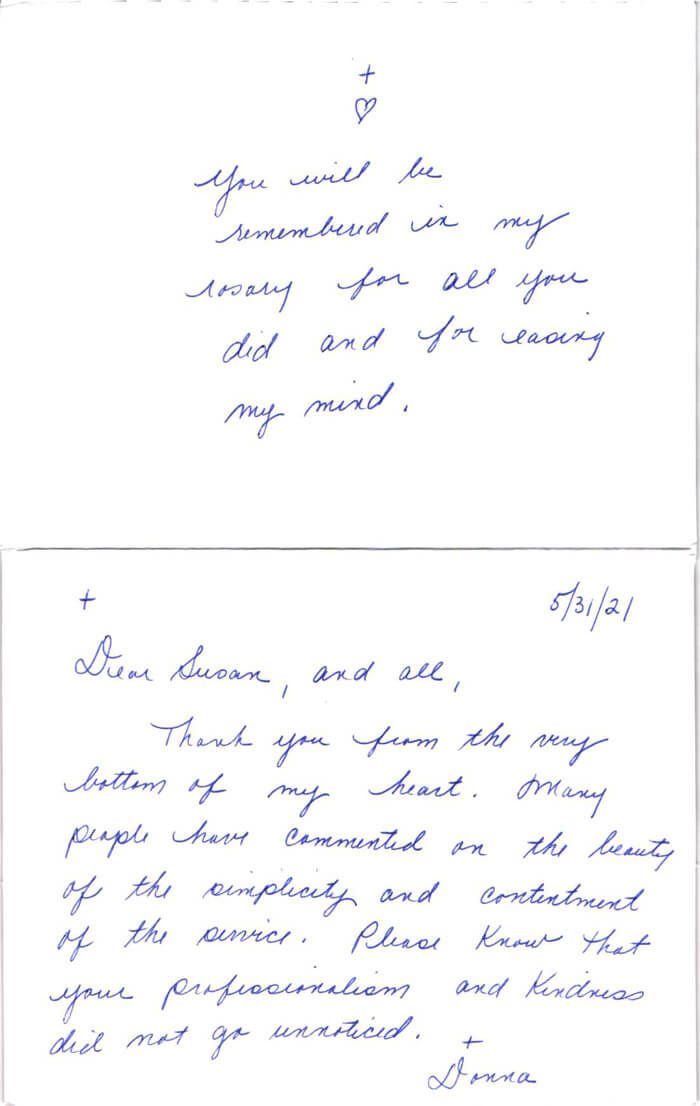 +
♡
You will be
remembered in my
rosary for all you
did and for easing
my mind.
+ 5/31/21
Dear Susan, and all,
Thank you from the very
bottom of my heart. Many
people have commented on the beauty
of the simplicity and contentment
of the service. Please Know that
your professionalism and Kindness
did not go unnoticed.
+
Donna